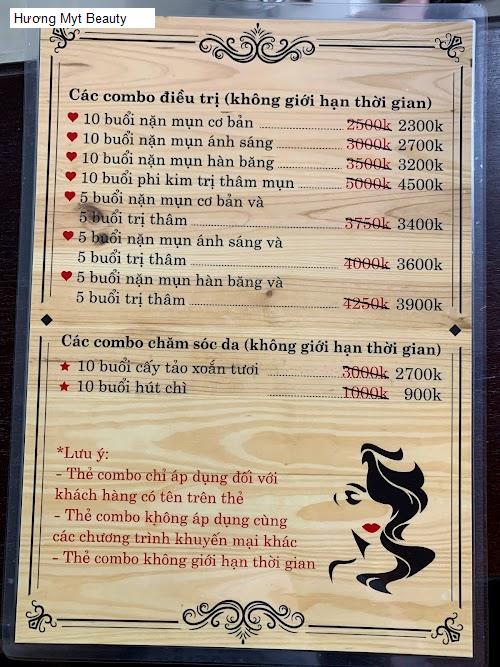 Hương Myt Beauty
Các combo điều trị (không giới hạn thời gian)
10 buổi nặn mụn cơ bản 2500k 2300k
10 buổi nặn mụn ánh sáng 3000k 2700k
10 buổi nặn mụn hàn băng 3500k 3200k
10 buổi phi kim trị thâm mụn 5000k 4500k
5 buổi nặn mụn cơ bản và
5 buổi trị thâm 3750k 3400k
5 buổi nặn mụn ánh sáng và
5 buổi trị thâm 4000k 3600k
5 buổi nặn mụn hàn băng và
5 buổi trị thâm 4250k 3900k
Các combo chăm sóc da (không giới hạn thời gian)
10 buổi cấy tảo xoắn tươi 3000k 2700k
10 buổi hút chì 1000k 900k
*Lưu ý:
- Thẻ combo chỉ áp dụng đối với
khách hàng có tên trên thẻ
- Thẻ combo không áp dụng cùng
các chương trình khuyến mại khác
- Thẻ combo không giới hạn thời gian